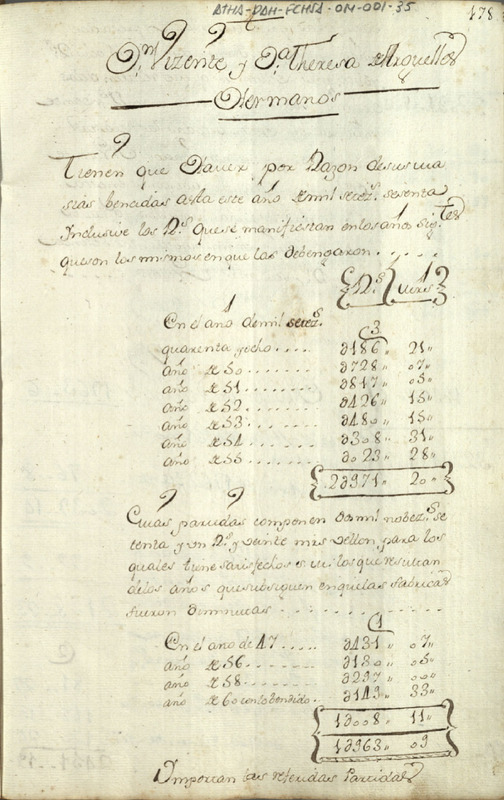 ATHA-DAH-FCHSA-OM-001-35
478
Dn. Vizente y Da. Theresa de Arguelles
Hermanos
Tienen que Haver por Razon de sus ma
seas bencidas asta este año de mil setezs. sesenta
Inclusive los Rs. que se manifiestan en los años sigtes.
que son los mismos en que las debengaron . . . .
Rs. mrs
En el año de mil setezs.
quarenta y ocho . . . . 186 " 21 "
año de 50 . . . . . . . 728 " 07 "
año de 51 . . . . . . . 817 " 05 "
año de 52 . . . . . . . 426 " 15 "
año de 53 . . . . . . . 480 " 15 "
año de 54 . . . . . . . 308 " 31 "
año de 55 . . . . . . . 023 " 28 "
2971 " 20 "
Cuias partidas componen dos mil nobezs. se
tenta y un Rs. y veinte mrs vellon, para los
quales tiene satisfechos los que resultan
de los años que subsiguen en que las fabricas
fueron diminutas . . . . . . . .
En el año de 47 . . . . . 431 " 07 "
año de 56 . . . . . . 130 " 05 "
año de 58 . . . . . . 297 " 00 "
año de 60 con lo bendido . 149 " 33 "
1008 " 11 "
1963 " 09
Importan las referidas Partidas